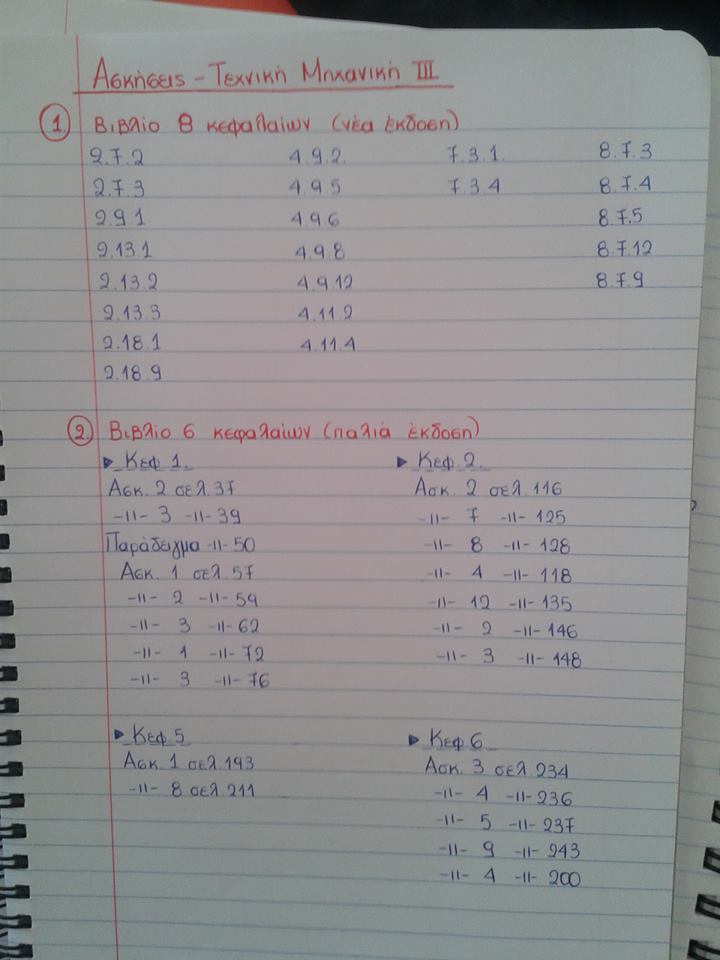 Ασκήσεις - Τεχνική Μηχανική ΙΙΙ
1. Βιβλίο 8 κεφαλαίων (νέα έκδοση)
2.7.2 4.9.2. 7.3.1. 8.7.3
2.7.3 4.9.5 7.3.4 8.7.4
2.9.1 4.9.6 8.7.5
2.13.1 4.9.8 8.7.12
2.13.2 4.9.12 8.7.9
2.13.3 4.11.2
2.18.1 4.11.4
2.18.9
2. Βιβλίο 6 κεφαλαίων (παλιά έκδοση)
Κεφ 1.
Ασκ. 2 σελ.37
-||- 3 -||- 39
Παράδειγμα -||- 50
Ασκ. 1 σελ.57
-||- 2 -||- 59
-||- 3 -||- 62
-||- 1 -||- 72
-||- 3 -||- 76
Κεφ 2.
Ασκ. 2 σελ.116
-||- 7 -||- 125
-||- 8 -||- 128
-||- 4 -||- 118
-||- 12 -||- 135
-||- 2 -||- 146
-||- 3 -||- 148
Κεφ 5
Ασκ. 1 σελ.193
-||- 8 σελ.211
Κεφ 6
Ασκ. 3 σελ 234
-||- 4 -||- 236
-||- 5 -||- 237
-||- 9 -||- 243
-||- 4 -||- 200